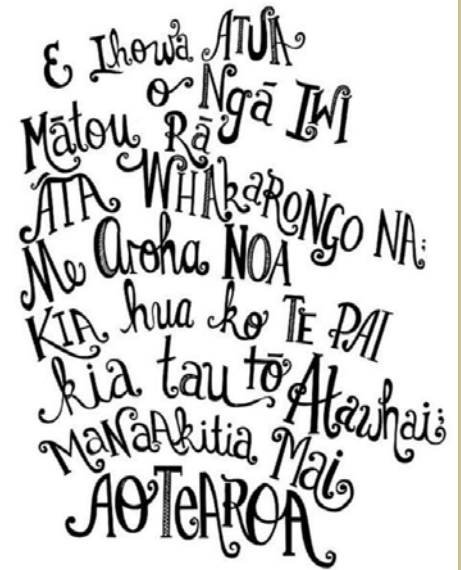 E Ihowā ATUA
o Ngā IWI
Mātou Rā
ĀTA WHAkaRONGO NA;
Me Aroha NOA
KIA hua ko TE PAI
kia tau tō Atawhai;
MaNaAkitia Mai
AOTeAROA